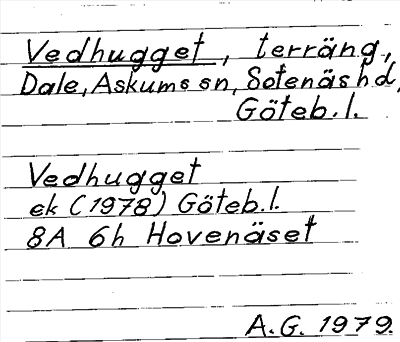 Vedhugget, terräng,
Dale, Askums sn, Sotenäs hd,
Göteb. l.
Vedhugget
ek (1978) Göteb. l.
8A 6h Hovenäset
A. G. 1979.